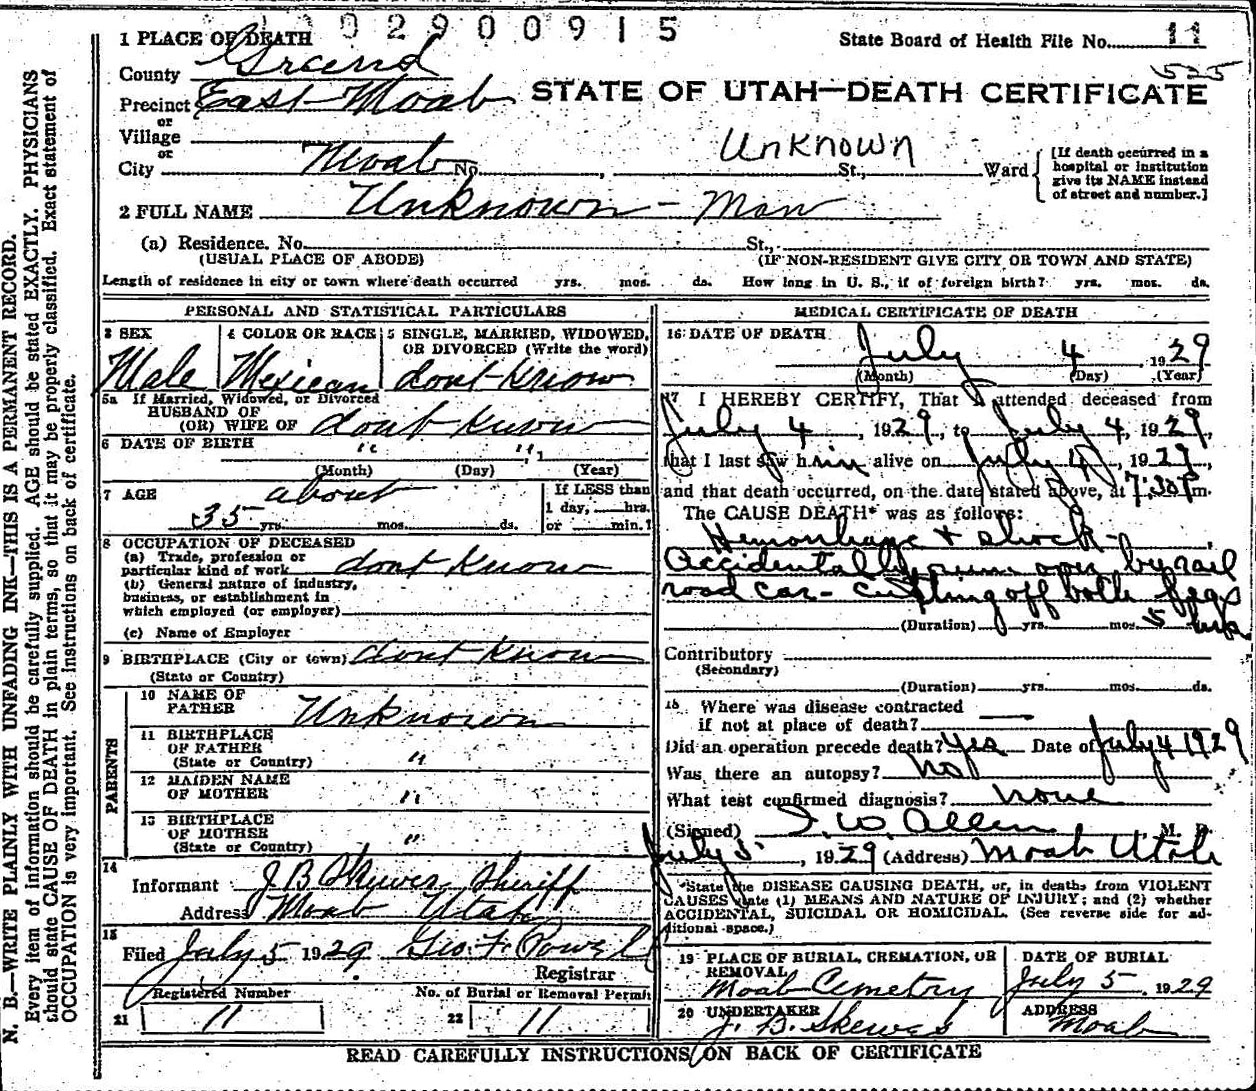 102900915
State Board of Health File No. 11
525
1 PLACE OF DEATH
County Grand
Precinct East Moab
or
Village
or
City Moab No. , Unknown St., Ward
[If death occurred in a
hospital or institution
give its NAME instead
of street and number.]
STATE OF UTAH—DEATH CERTIFICATE
2 FULL NAME Unknown - Man
(a) Residence. No. St.,
(USUAL PLACE OF ABODE) (IF NON-RESIDENT GIVE CITY OR TOWN AND STATE)
Length of residence in city or town where death occurred yrs. mos. ds. How long in U. S., if of foreign birth? yrs. mos. ds.
PERSONAL AND STATISTICAL PARTICULARS
3 SEX Male
4 COLOR OR RACE Mexican
5 SINGLE, MARRIED, WIDOWED,
OR DIVORCED (Write the word)
dont know
5a If Married, Widowed, or Divorced
HUSBAND OF
(OR) WIFE OF dont know
6 DATE OF BIRTH " "
(Month) (Day) (Year)
7 AGE about
35 yrs. mos. ds.
If LESS than
1 day, hrs.
or min.?
8 OCCUPATION OF DECEASED
(a) Trade, profession or
particular kind of work dont know
(b) General nature of industry,
business, or establishment in
which employed (or employer)
(c) Name of Employer
9 BIRTHPLACE (City or town) dont know
(State or Country)
PARENTS
10 NAME OF
FATHER Unknown
11 BIRTHPLACE
OF FATHER
(State or Country) "
12 MAIDEN NAME
OF MOTHER "
13 BIRTHPLACE
OF MOTHER
(State or Country) "
14
Informant J B Skewes, Sheriff
Address Moab Utah
15
Filed July 5 1929 Geo. F. Powel
Registrar
Registered Number No. of Burial or Removal Permit
21 11 22 11
MEDICAL CERTIFICATE OF DEATH
16 DATE OF DEATH
July 4 1929
(Month) (Day) (Year)
17 I HEREBY CERTIFY, That I attended deceased from
July 4, 1929, to July 4, 1929,
that I last saw him alive on July 4, 1929,
and that death occurred, on the date stated above, at 7:30 P m.
The CAUSE DEATH* was as follows:
Hemorhage + shock-
Accidentally run over by rail
road car - cutting off both legs
(Duration) yrs. mos. 5 hrs
Contributory
(Secondary)
(Duration) yrs. mos. ds.
18 Where was disease contracted
if not at place of death? —
Did an operation precede death? Yes Date of July 4 1929
Was there an autopsy? No
What test confirmed diagnosis? none
(Signed) I. W. Allen, M. D.
July 5, 1929 (Address) Moab Utah
*State the DISEASE CAUSING DEATH, or, in deaths from VIOLENT
CAUSES state (1) MEANS AND NATURE OF INJURY; and (2) whether
ACCIDENTAL, SUICIDAL OR HOMICIDAL. (See reverse side for ad-
ditional space.)
19 PLACE OF BURIAL, CREMATION, OR
REMOVAL
Moab Cemetry
DATE OF BURIAL
July 5, 1929
20 UNDERTAKER
J. B. Skewes
ADDRESS
Moab
READ CAREFULLY INSTRUCTIONS ON BACK OF CERTIFICATE
N. B.—WRITE PLAINLY WITH UNFADING INK—THIS IS A PERMANENT RECORD.
Every item of information should be carefully supplied. AGE should be stated EXACTLY. PHYSICIANS
should state CAUSE OF DEATH in plain terms, so that it may be properly classified. Exact statement of
OCCUPATION is very important. See instructions on back of certificate.